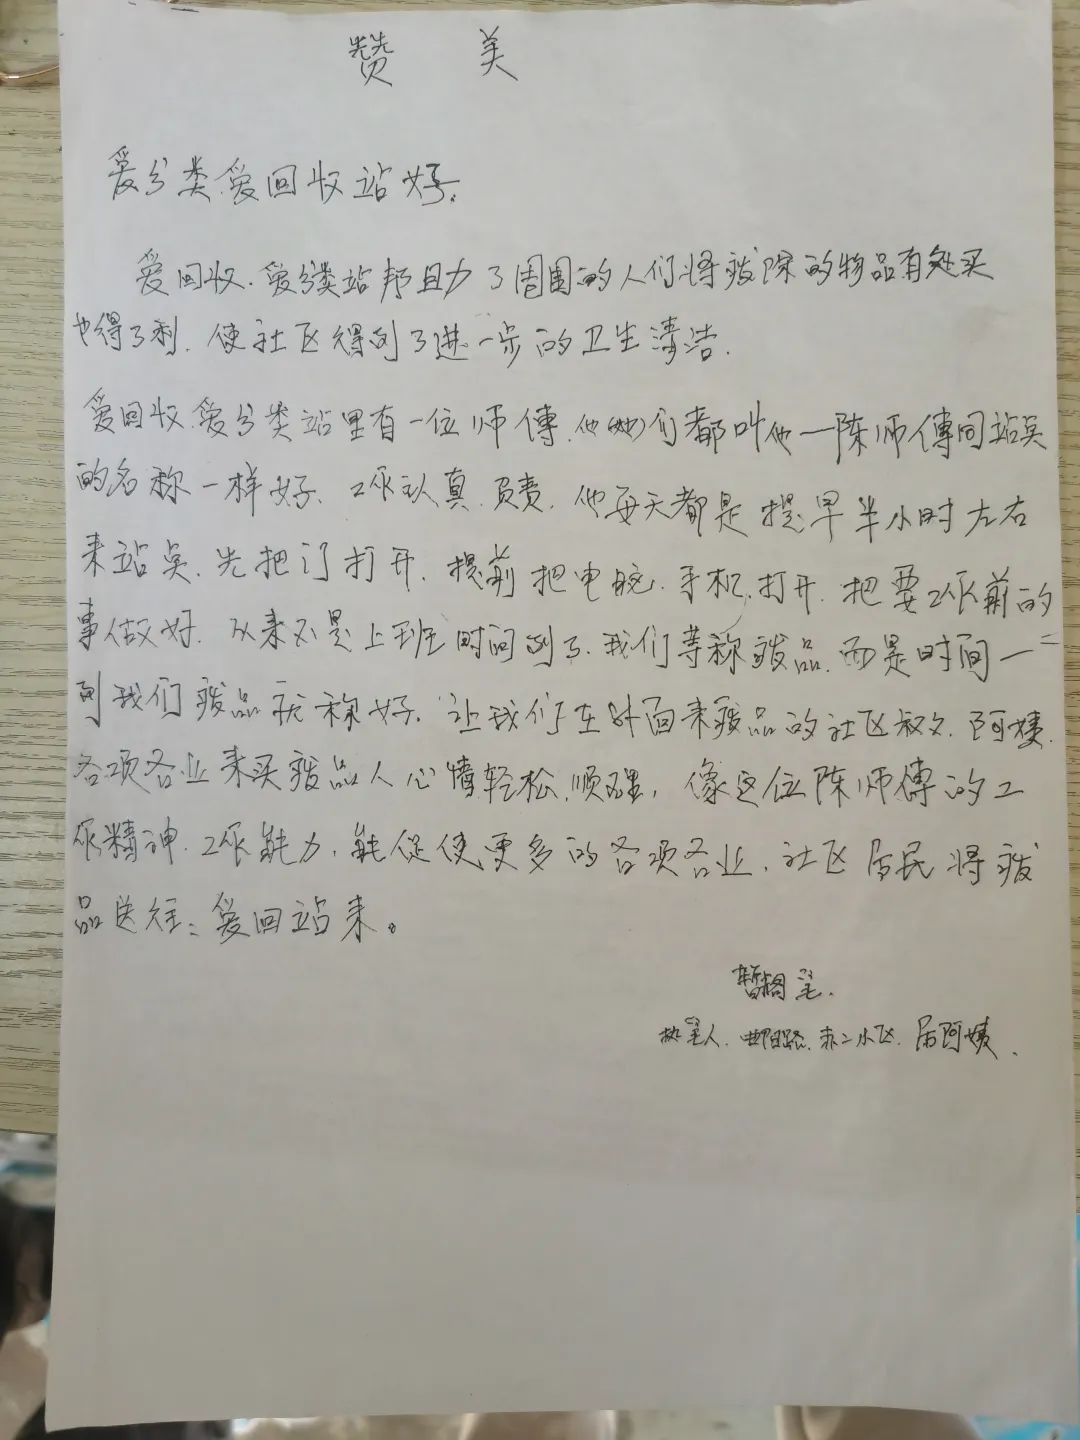 赞 美
爱分类爱回收站好.
爱回收.爱分类站帮助了周围的人们将废除的物品有处买
也得了利.使社区得到了进一步的卫生清洁.
爱回收.爱分类站里有一位师傅.他(她)们都叫他一陈师傅同站点
的名称一样好、工作认真.负责.他每天都是提早半小时左右
来站点.先把门打开.提前把电脑.手机.打开.把要工作前的
事做好.从来不是上班时间到了.我们等称废品.而是时间一
到我们废品就称好.让我们在外面来废品的社区叔叔.阿姨.
各项各业来买废品人心情轻松.顺理,像这位陈师傅的工
作精神.工作能力.能促使更多的各项各业.社区居民将废
品送往:爱回站来。
暂搁笔.
执笔人.曲阳路.赤二小区.居阿姨.